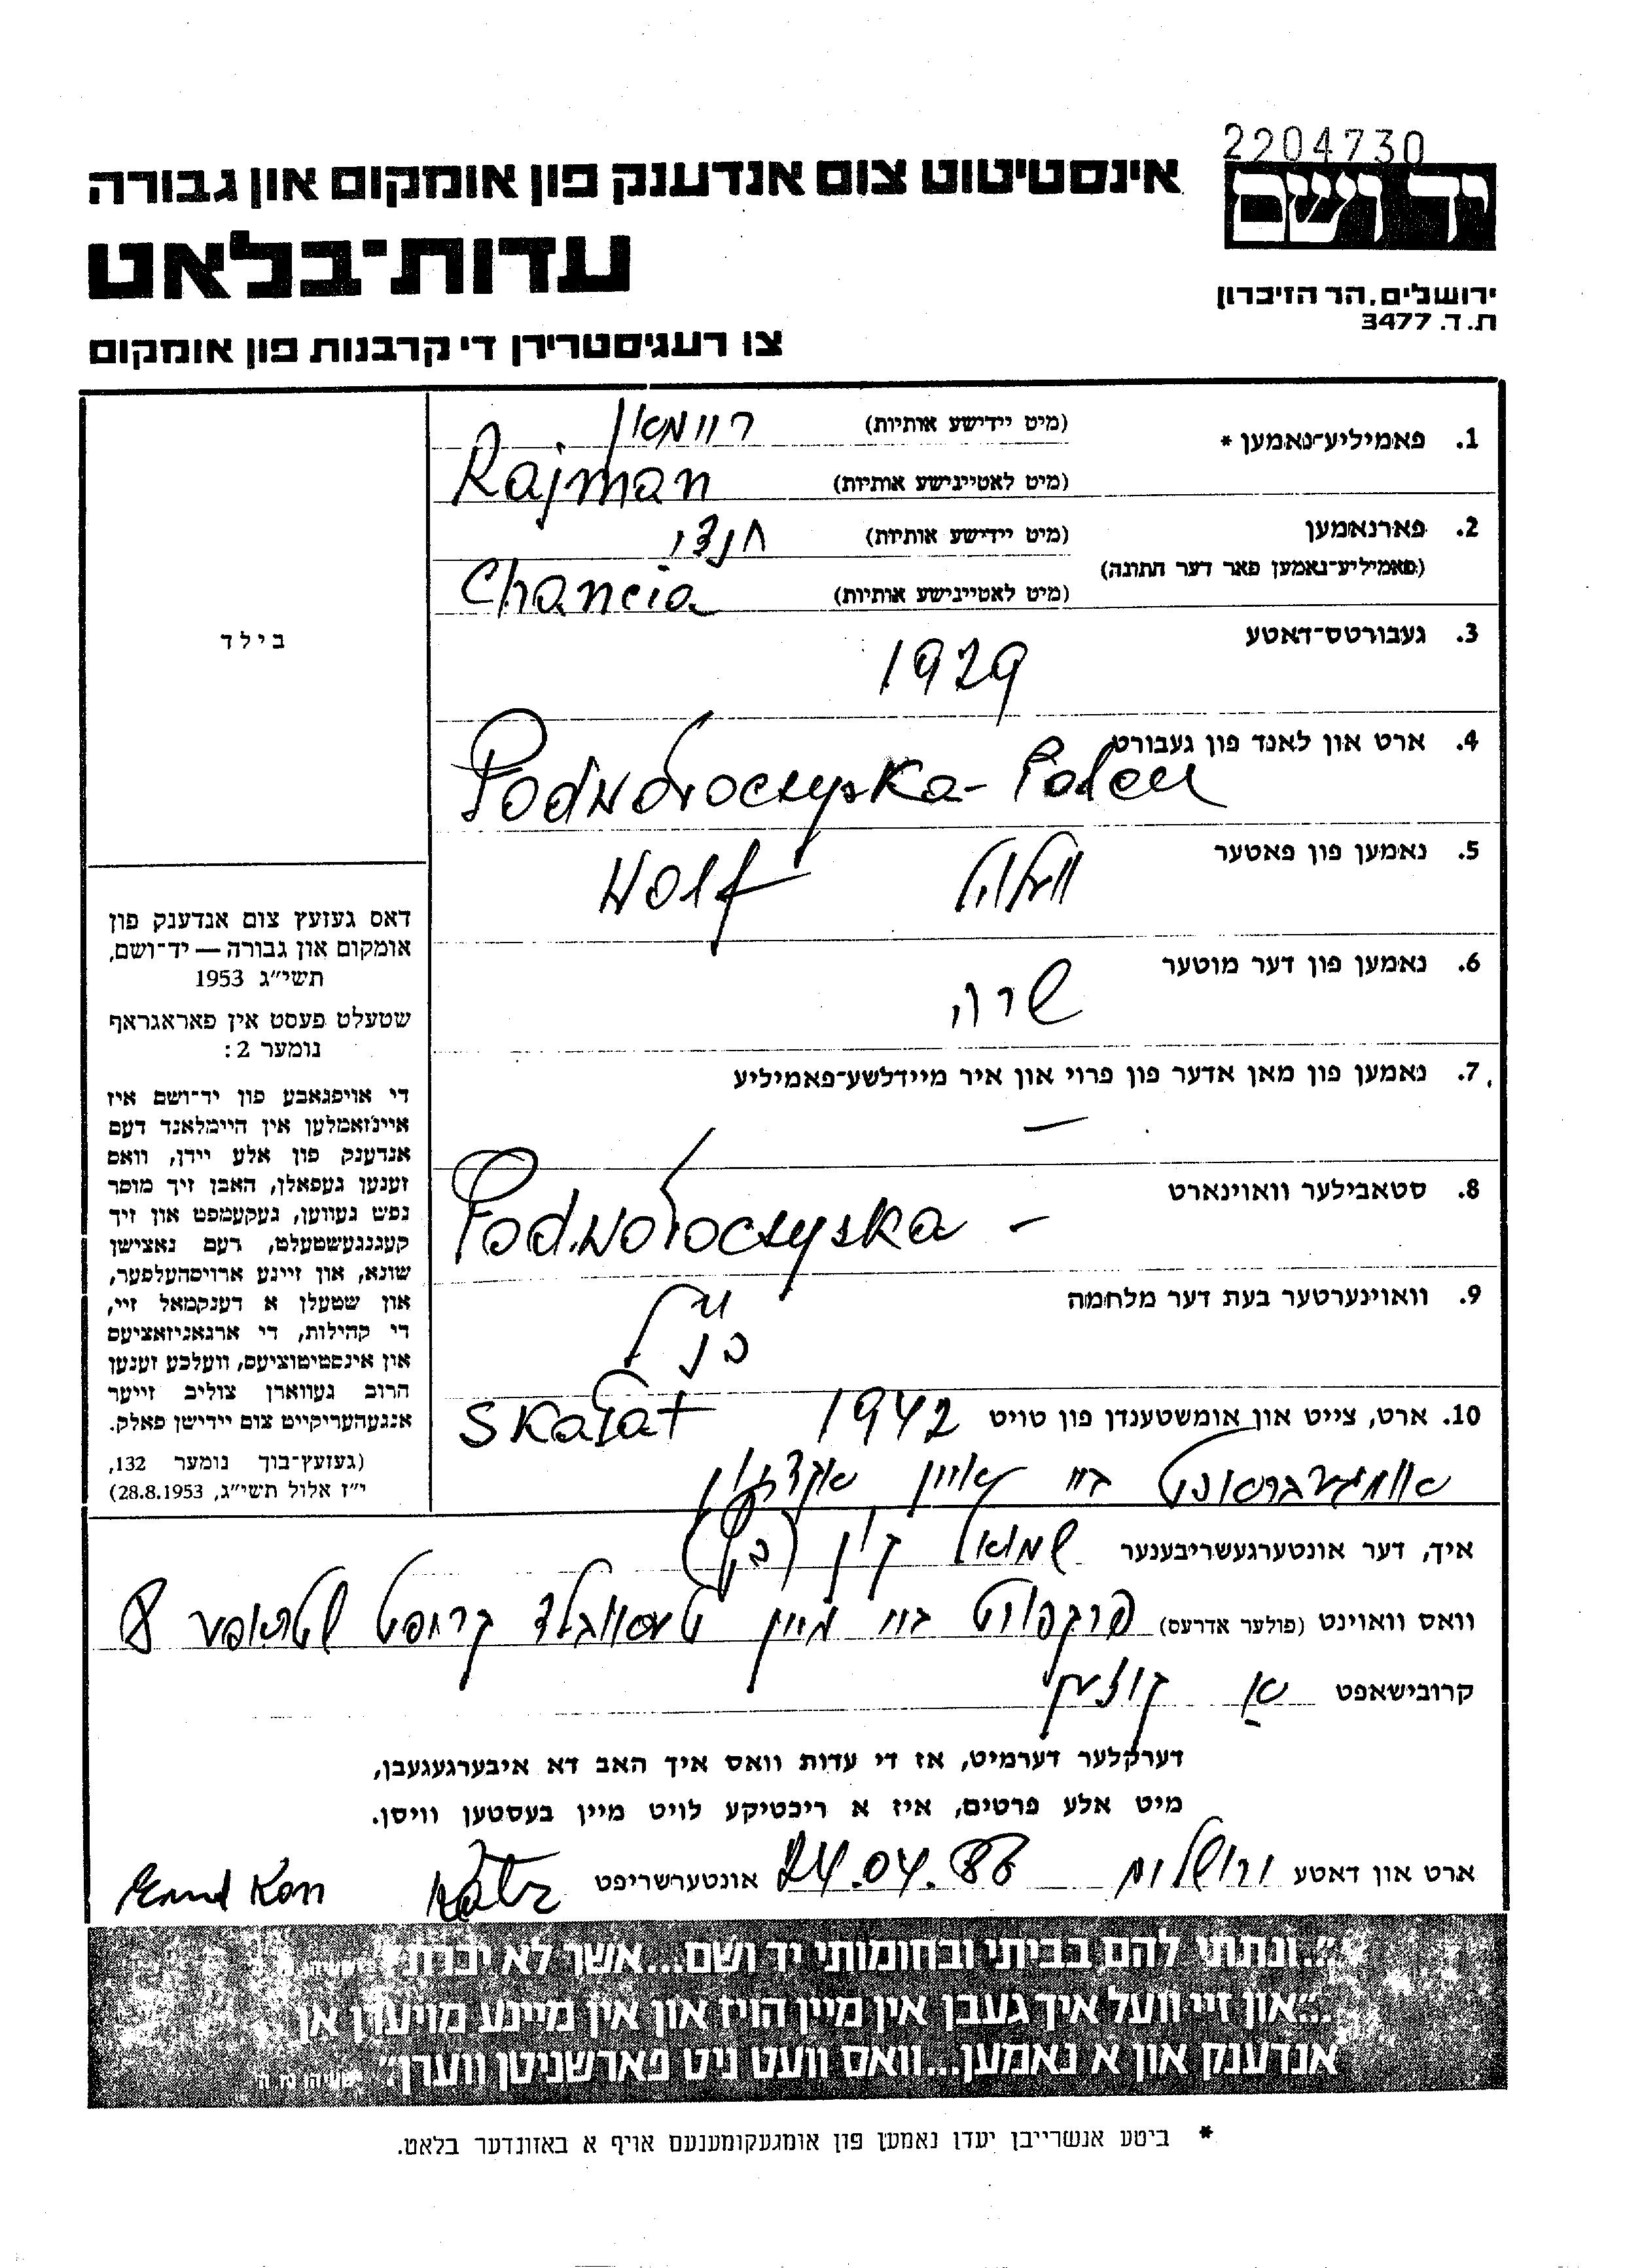 2204730
יד ושם
ירושלים, הר הזיכרון
ת.ד. 3477
אינסטיטוט צום אנדענק פון אומקום און גבורה
עדות־בלאט
צו רעגיסטרירן די קרבנות פון אומקום
1. פאמיליע־נאמען * (מיט יידישע אותיות) ריימאן
(מיט לאטיינישע אותיות) Rajman
2. פארנאמען (מיט יידישע אותיות) חנצי
(פאמיליע־נאמען פאר דער חתונה) (מיט לאטיינישע אותיות) Chancia
3. געבורטס־דאטע 1929
4. ארט און לאנד פון געבורט Podwołoczyska - Polen
5. נאמען פון פאטער וועלוול Wolf
6. נאמען פון דער מוטער שרה
7. נאמען פון מאן אדער פון פרוי און איר מיידלשע־פאמיליע —
8. סטאבילער וואוינארט Podwołoczyska —
9. וואוינערטער בעת דער מלחמה
10. ארט, צייט און אומשטענדן פון טויט 1942 Skałat
אומגעבראכט ביי איין אקציון
בילד
דאס געזעץ צום אנדענק פון
אומקום און גבורה — יד־ושם,
תשי״ג 1953
שטעלט פעסט אין פאראגראף
נומער 2:
די אויפגאבע פון יד־ושם איז
איינזאמלען אין היימלאנד דעם
אנדענק פון אלע יידן, וואס
זענען געפאלן, האבן זיך מוסר
נפש געווען, געקעמפט און זיך
קעגנגעשטעלט, דעם נאצישן
שונא, און זיינע ארויסהעלפער,
און שטעלן א דענקמאל זיי,
די קהילות, די ארגאניזאציעס
און אינסטיטוציעס, וועלכע זענען
חרוב געווארן צוליב זייער
אנגעהעריקייט צום יידישן פאלק.
(געזעץ־בוך נומער 132,
י״ז אלול תשי״ג, 28.8.1953)
איך, דער אונטערגעשריבענער שמואל קון (כץ)
וואס וואוינט (פולער אדרעס) פרנקפורט ביי מיין 8
קרובישאפט א קוזינע
דערקלער דערמיט, אז די עדות וואס איך האב דא איבערגעגעבן,
מיט אלע פרטים, איז א ריכטיקע לויט מיין בעסטען וויסן.
ארט און דאטע ירושלים 24.04.88 אונטערשריפט Katz Kon
״...ונתתי להם בביתי ובחומותי יד ושם...אשר לא יכרת״ ישעיהו
״...און זיי וועל איך געבן אין מיין הויז און אין מיינע מויערן אן
אנדענק און א נאמען...וואס וועט ניט פארשניטן ווערן״ ישעיהו נו, ה
* ביטע אנשרייבן יעדן נאמען פון אומגעקומענעם אויף א באזונדער בלאט.